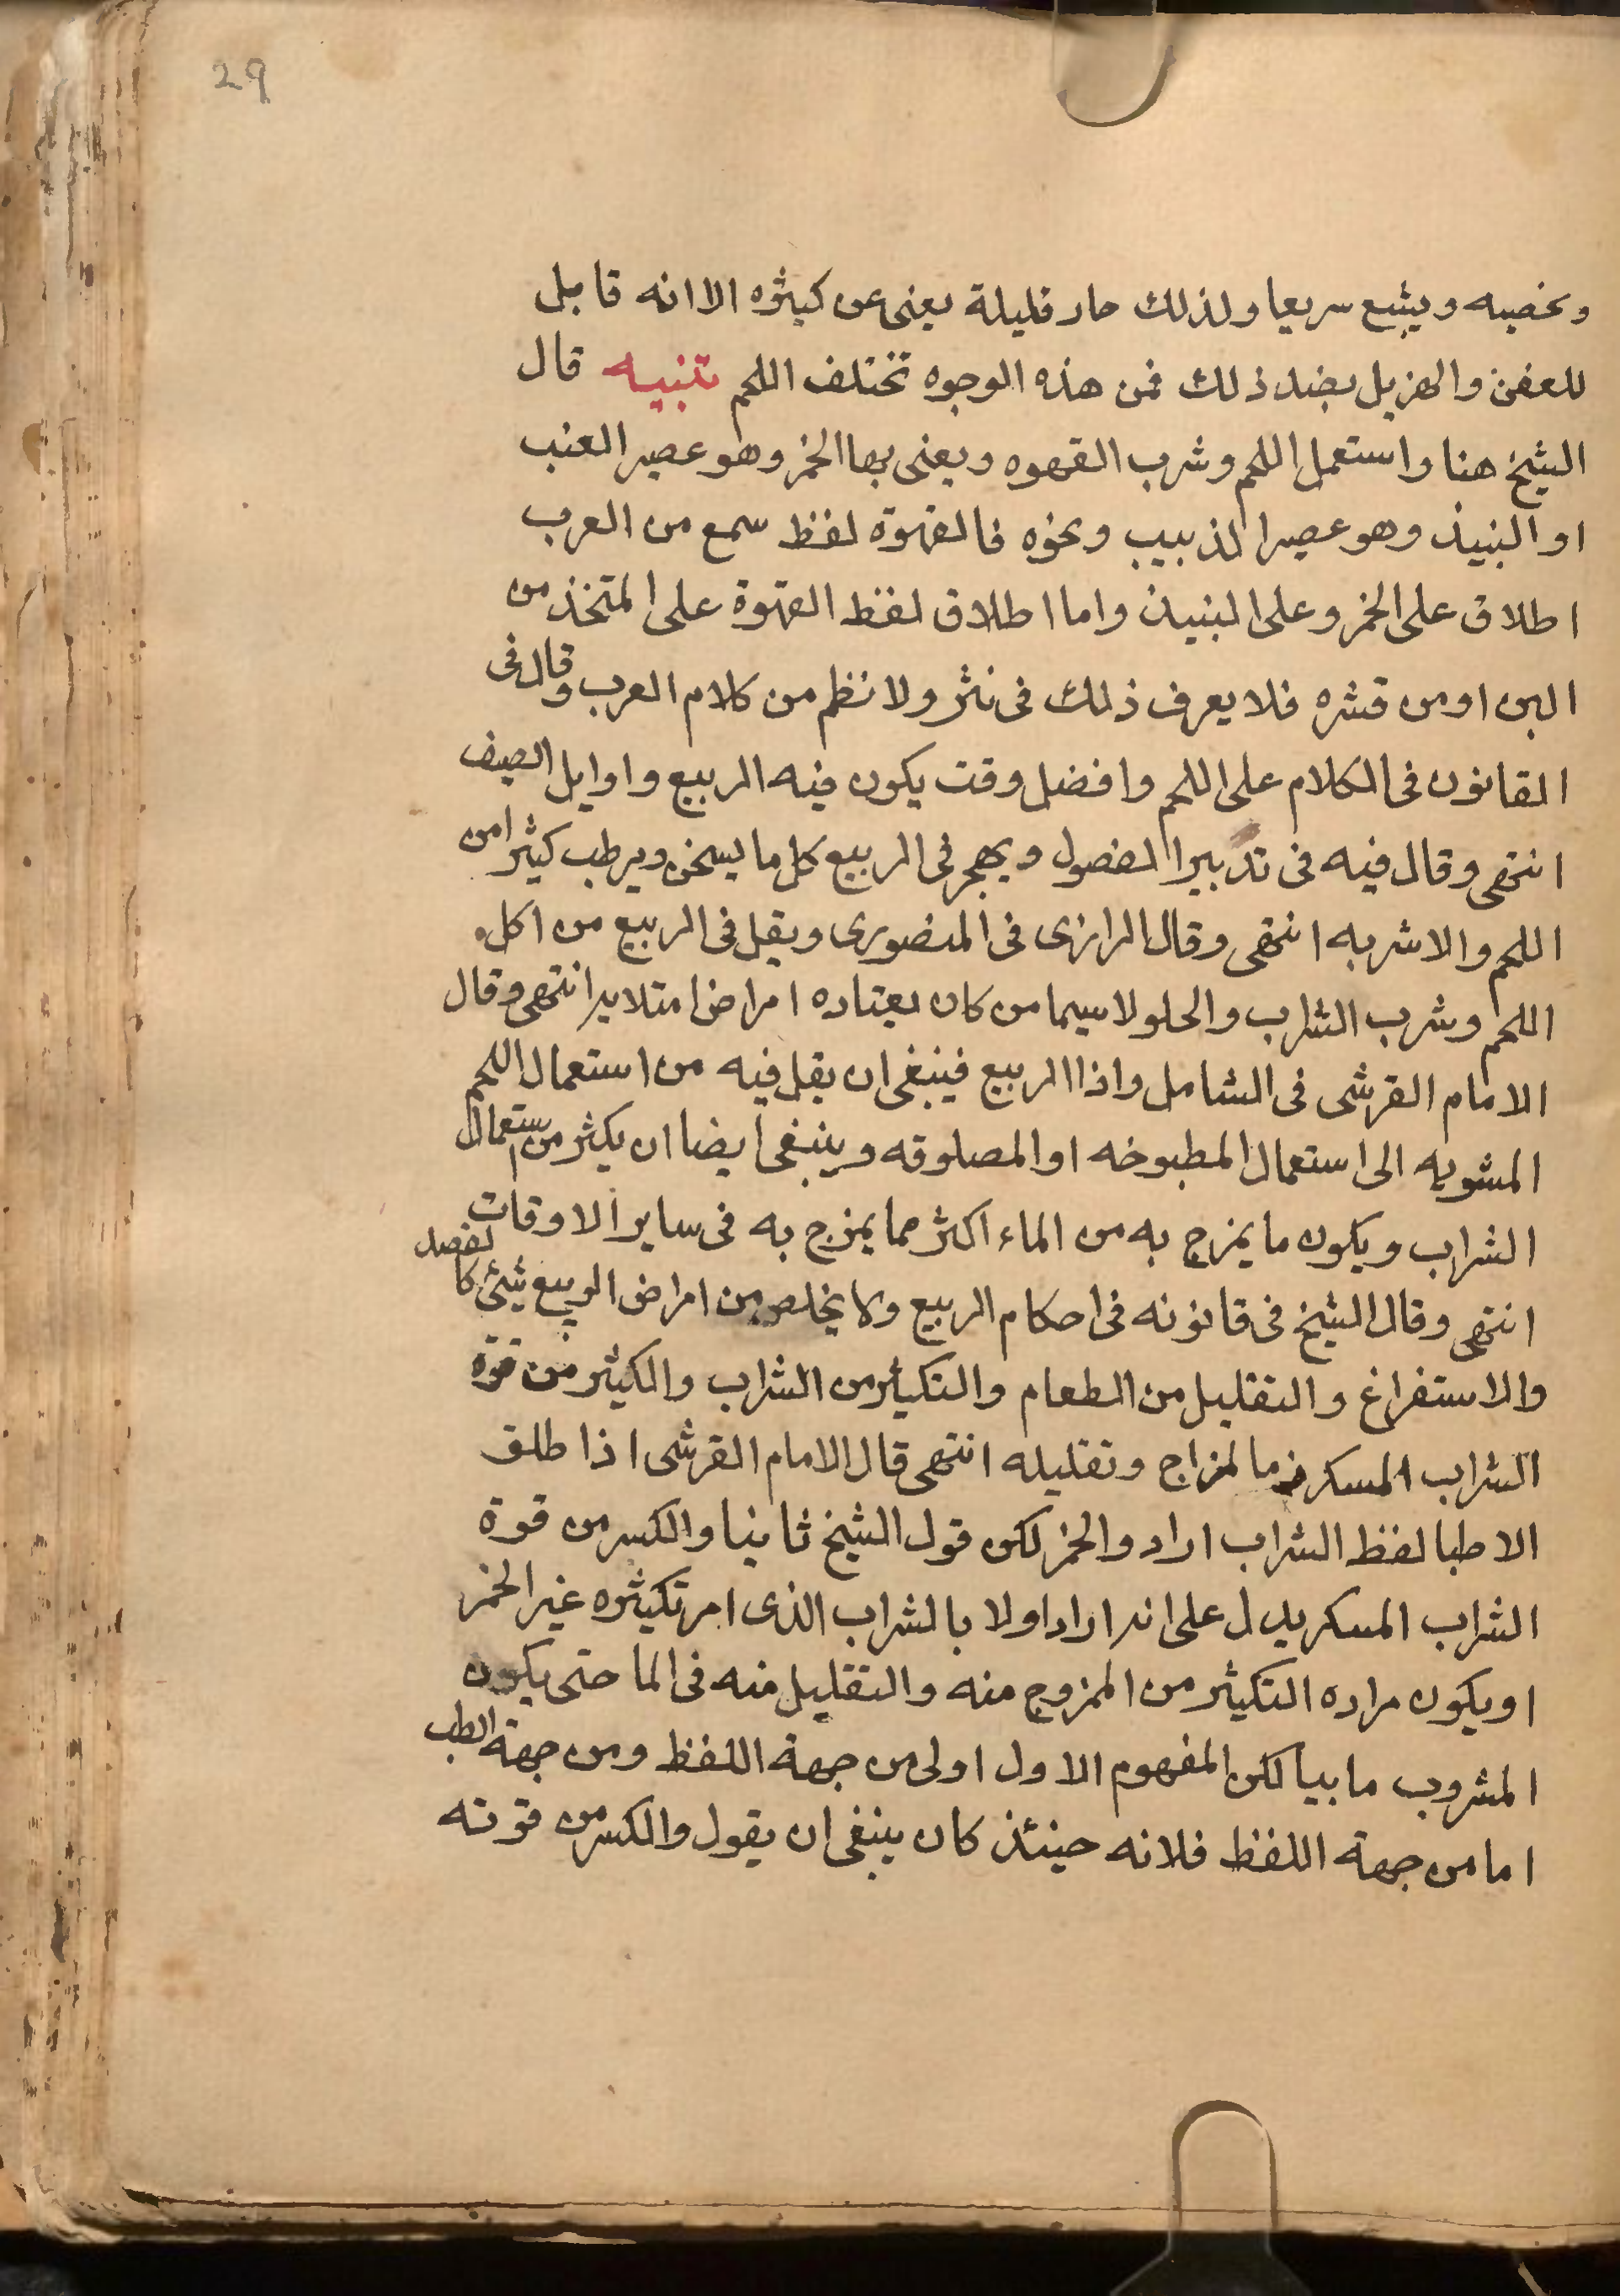 29
وخصبه ويشبع سريعا ولذلك صار قليلة يغنى عن كثيره الا انه قابل
للعفن والهزيل بضد ذلك فمن هذه الوجوه تختلف اللحم تنبيه قال
الشيخ هنا واستعمل اللحم وشرب القهوه ويعنى بها الخمر وهو عصير العنب
او النبيذ وهو عصير الذبيب ونحوه فالقهوة لفظ سمع من العرب
اطلاق على الخمر وعلى النبيذ واما اطلاق لفظ القهوة على المتخذ من
البن او من قشره فلا يعرف ذلك فى نثر ولا نظم من كلام العرب وقال فى
القانون فى الكلام على اللحم وافضل وقت يكون فيه الربيع واوايل الصيف
انتهى وقال فيه فى تدبير الفصول ويهجر فى الربيع كل ما يسخن ويرطب كثيرا من
اللحم والاشربه انتهى وقال الرازى فى المنصورى ويقل فى الربيع من اكل
اللحم وشرب الشراب والحلو لا سيما من كان يعتاده امراض امتلايه انتهى وقال
الامام القرشى فى الشامل واذا الربيع فينبغى ان يقل فيه من استعمال اللحم
المشويه الى استعمال المطبوخه او المصلوقه وينبغى ايضا ان يكثر من استعمال
الشراب ويكون ما يمزج به من الماء اكثر مما يمزج به فى ساير الاوقات
انتهى وقال الشيخ فى قانونه فى احكام الربيع ولا يخلص من امراض الربيع شيئ كالفصد
والاستفراغ والتقليل من الطعام والتكثير من الشراب والكثير من قوة
الشراب المسكر مزاج وتقليله انتهى قال الامام القرشى اذا طلق
الاطبا لفظ الشراب ارادوا الخمر لكن قول الشيخ ثانيا والكسر من قوة
الشراب المسكر يدل على انه اراد اولا بالشراب الذى امر تكثيره غير الخمر
او يكون مراده التكثير من الممزوج منه والتقليل منه فى الما حتى يكون
المشروب مابيا لكن المفهوم الاول اولى من جهة اللفظ ومن جهة الطب
اما من جهة اللفظ فلانه حينئذ كان ينبغى ان يقول والكسر من قوته